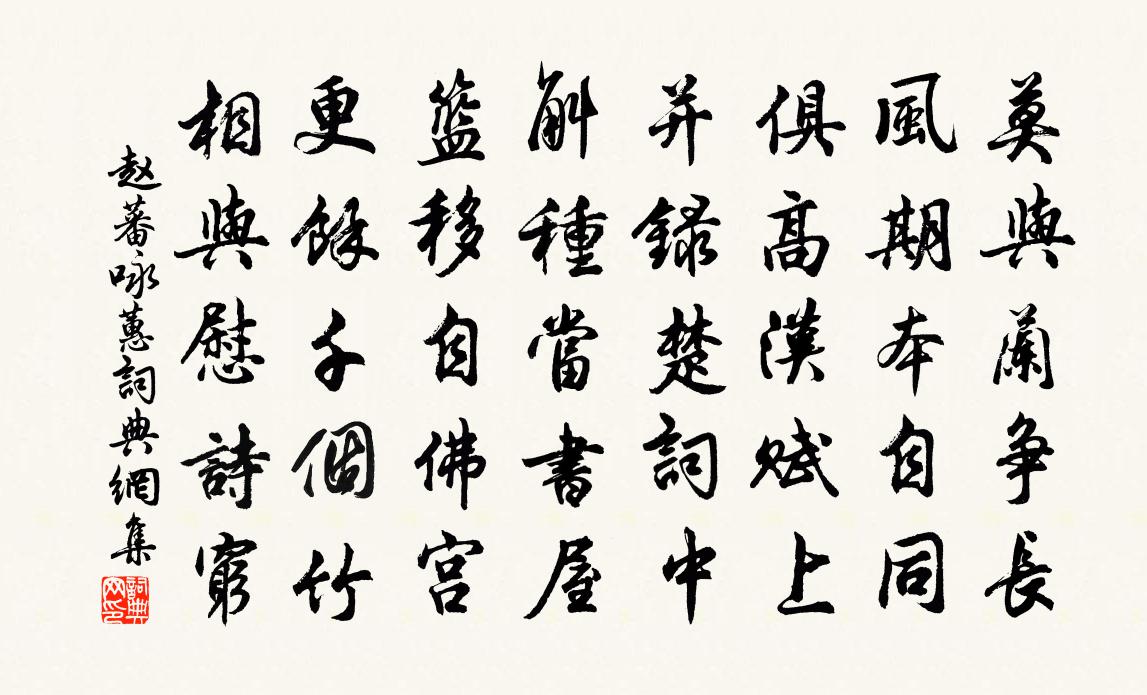 莫與蘭爭長
風期本自同
俱高漢賦上
并錄楚詞中
斛種當書屋
籃移自佛宮
更餘千個竹
相與慰詩窮
赵蕃咏蕙詞典網集
詞典网印